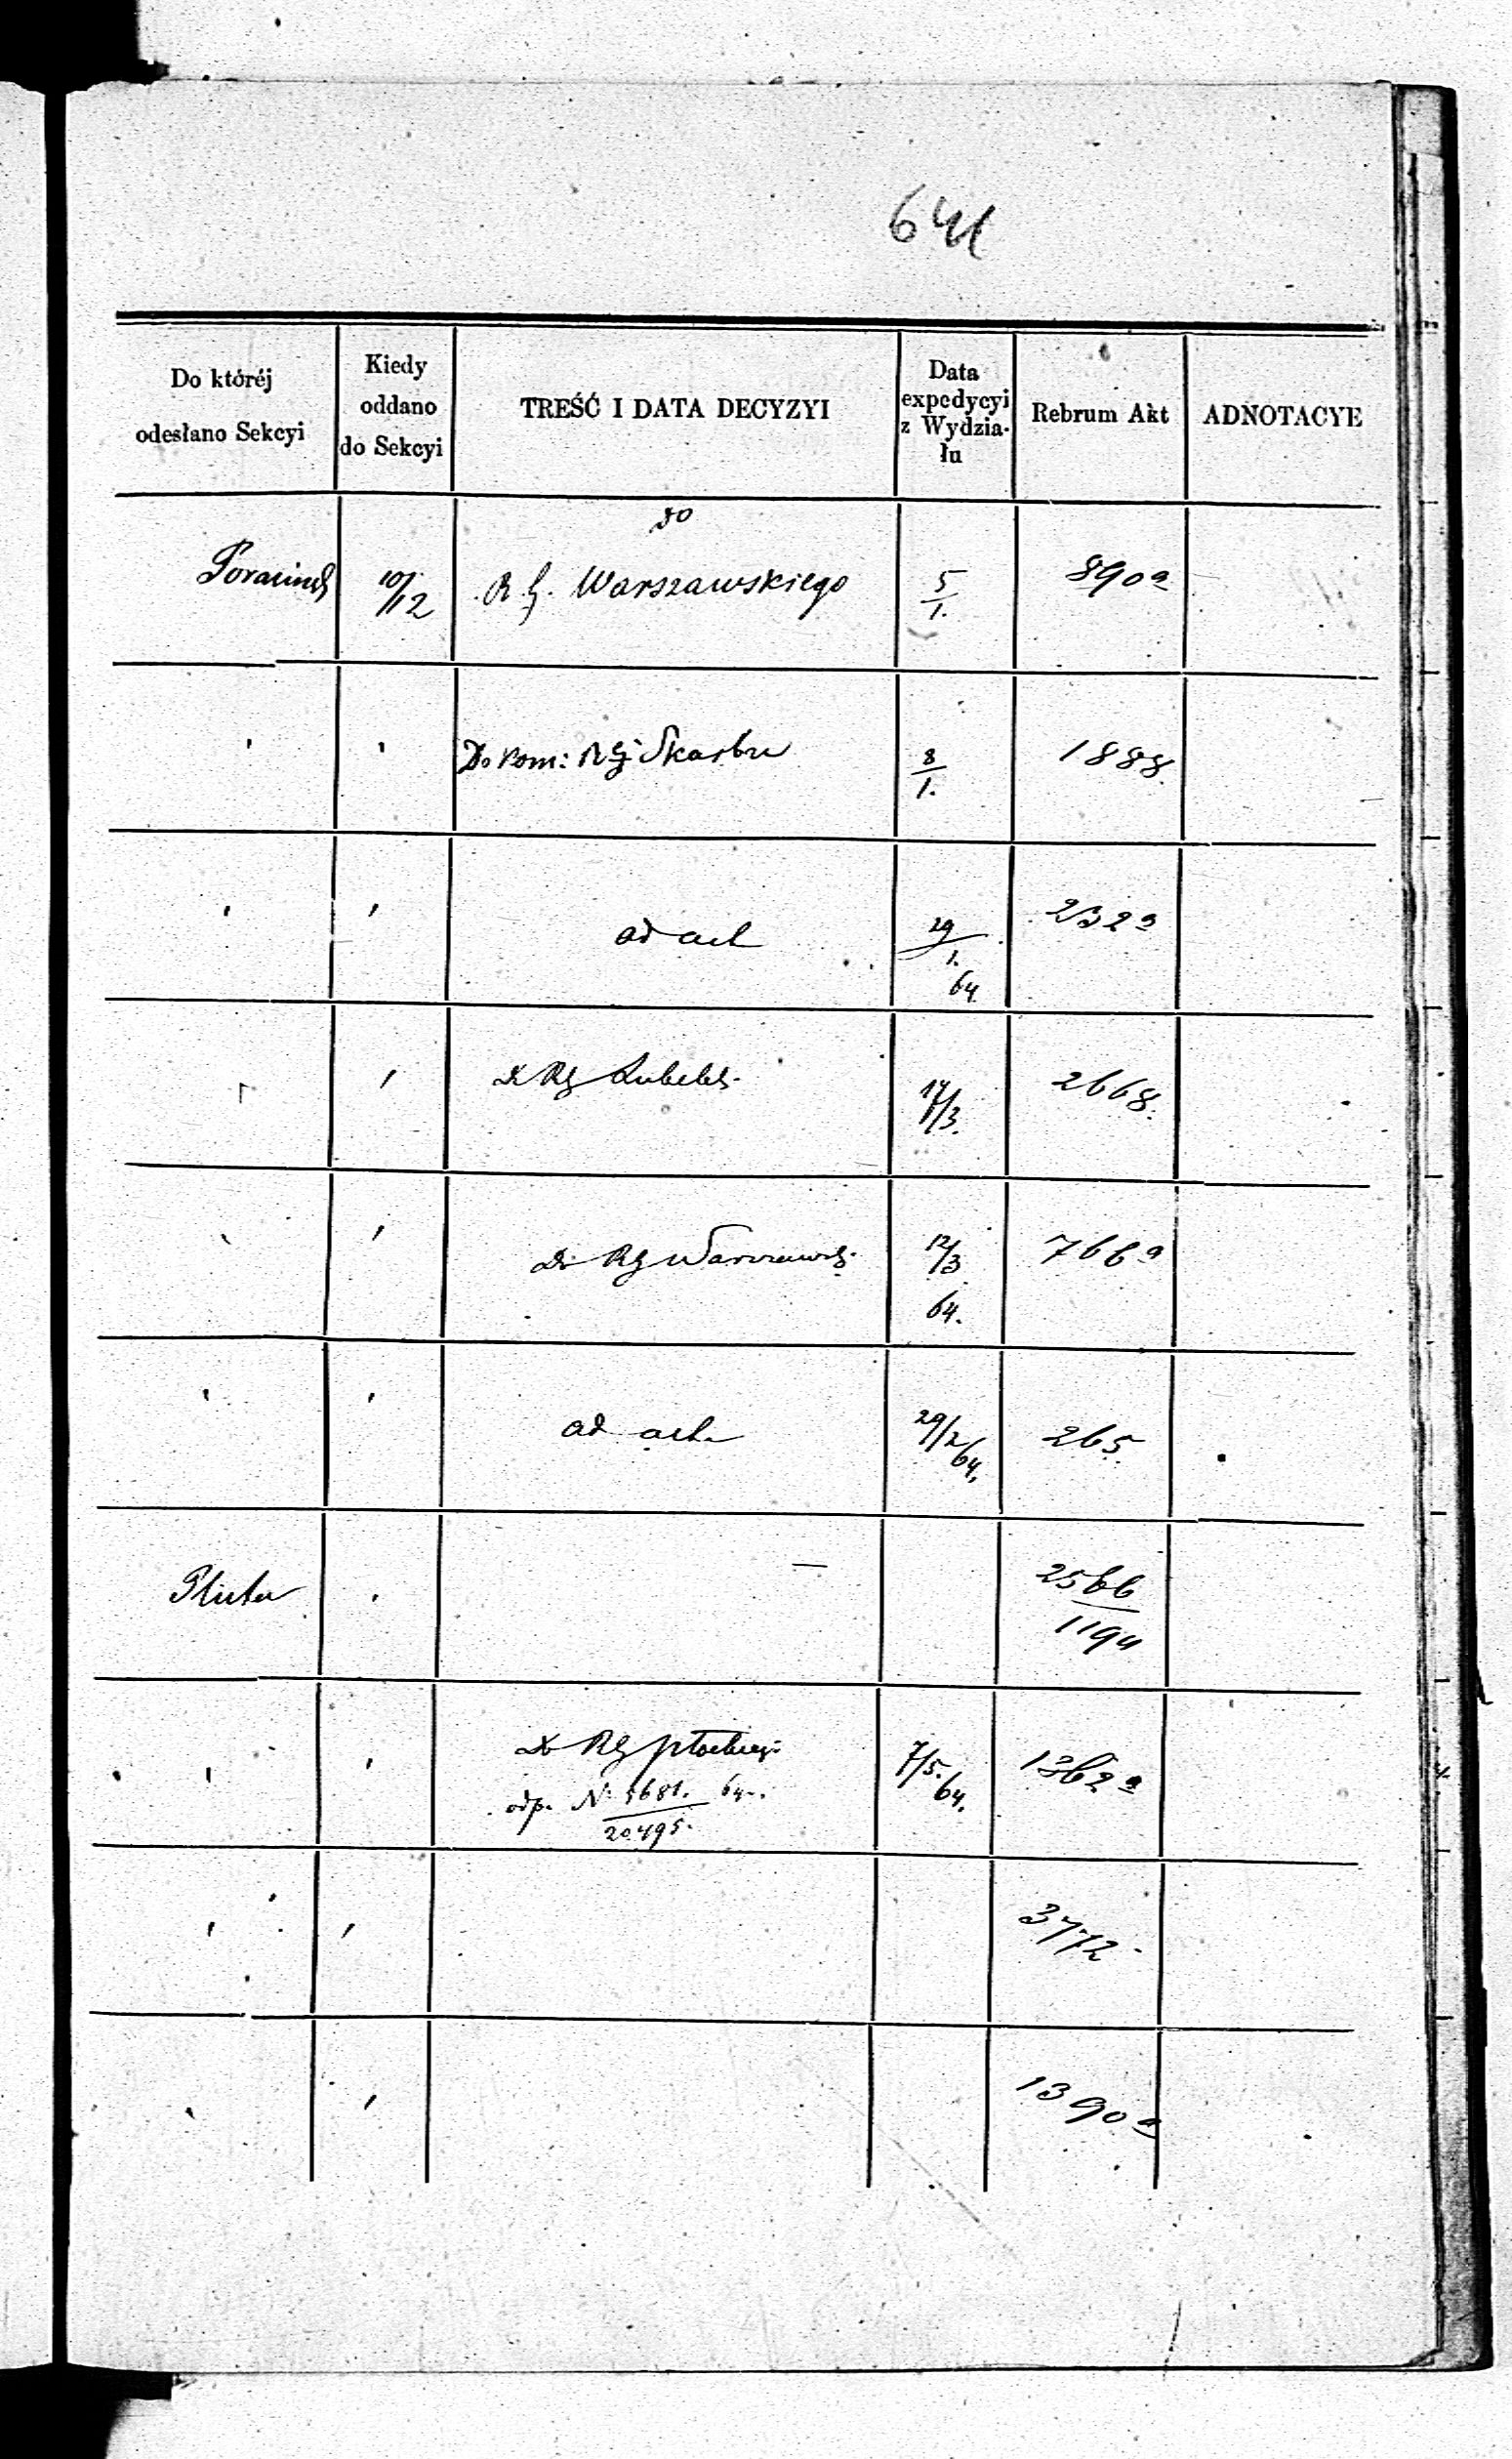 641
Do któréj odesłano Sekcyi | Kiedy oddano do Sekcyi | TREŚĆ I DATA DECYZYI | Data expedycyi z Wydzia-łu | Rebrum Akt | ADNOTACYE
10/12 | do R. G. Warszawskiego | 5/1. | 890 a
Do Kom: Rz. Skarbu | 8/1. | 1888.
ad act | 29/1. 64 | 232 a
Do RG Lubels. | 14/3. | 2668.
Do RG Warszaws. | 12/3 64. | 766 a
ad acta | 29/2 64. | 265
— | 2566/1194
Do RG Płockieg:
odp. N. 5681. 64. | 7/5. 64. | 1362 a
20495.
3772.
1390 a